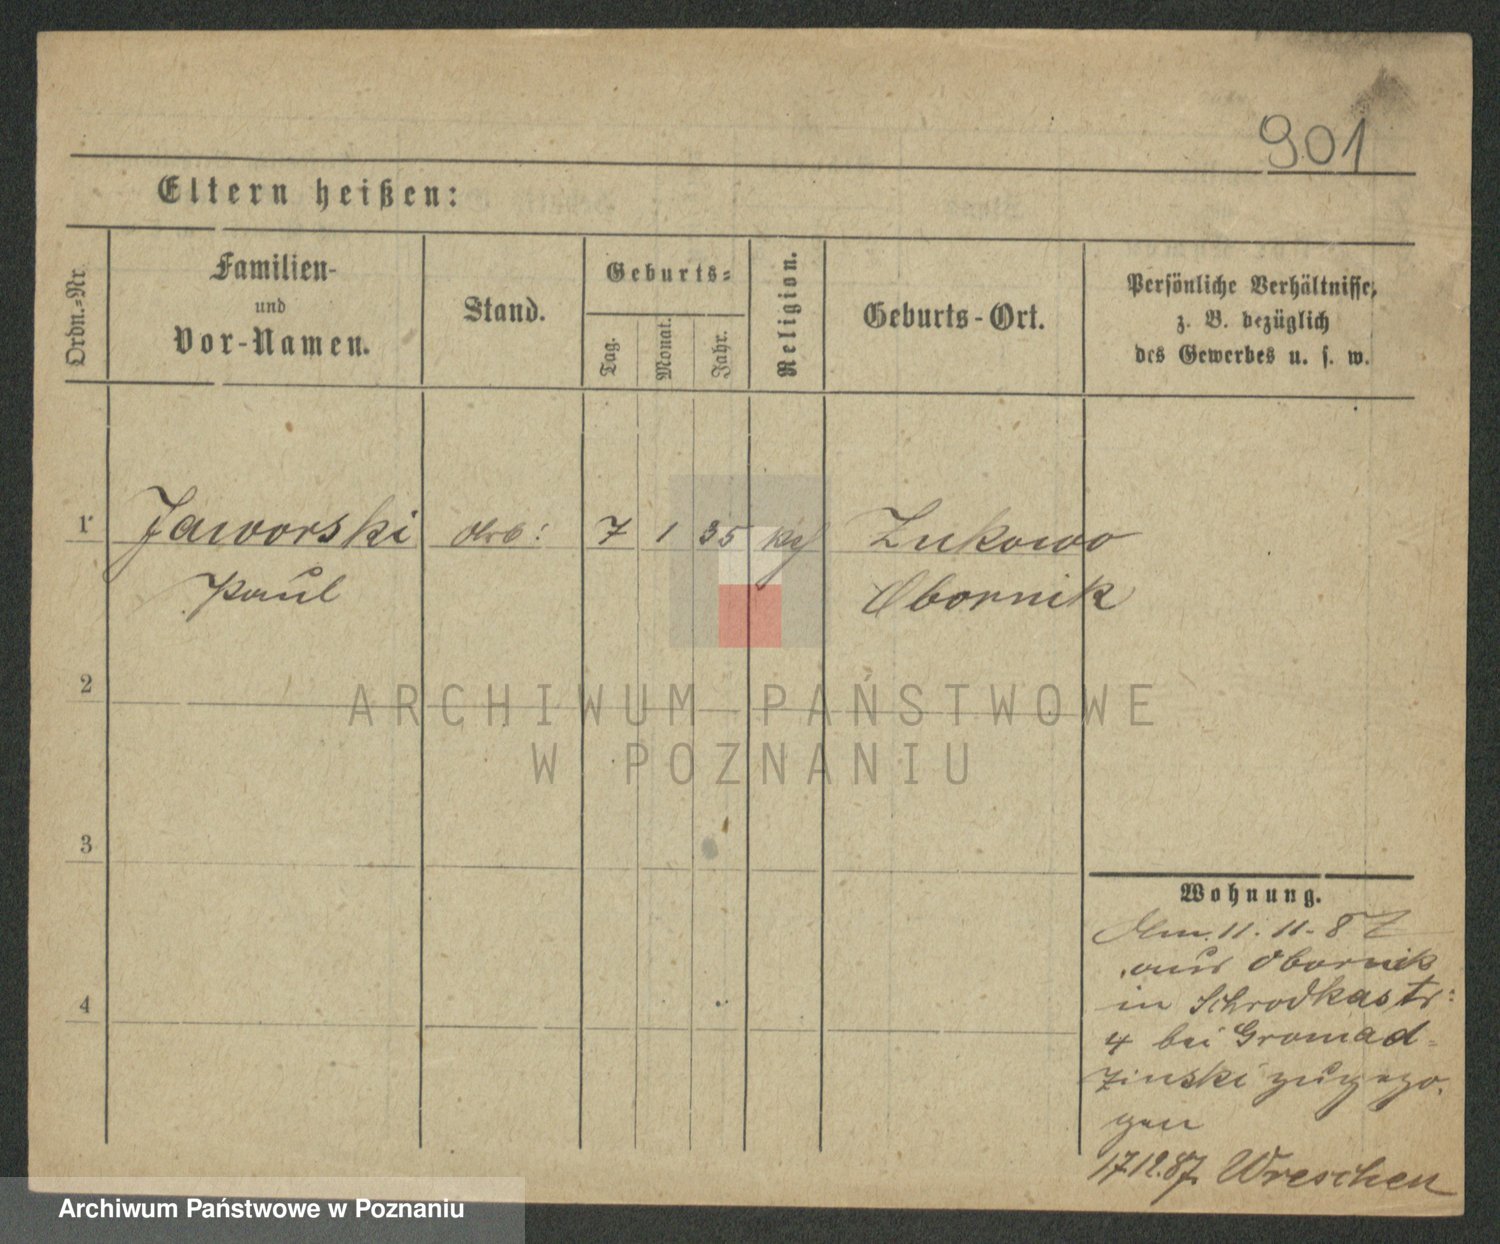 901
Eltern heißen:
Ordn.-Nr.
Familien-
und
Vor-Namen.
Stand.
Geburts-
Tag.
Monat.
Jahr.
Religion.
Geburts-Ort.
Persönliche Verhältnisse,
z. B. bezüglich
des Gewerbes u. s. w.
1 Jaworski Arb: 7 1 35 Zukowo
Paul Obornik
2
ARCHIWUM PAŃSTWOWE
W POZNANIU
3
4
Wohnung.
Am 11.11.87
aus Obornik
in Schrodkastr:
4 bei Gromad-
zinski zugezo-
gen
17.12.87. Wreschen
Archiwum Państwowe w Poznaniu